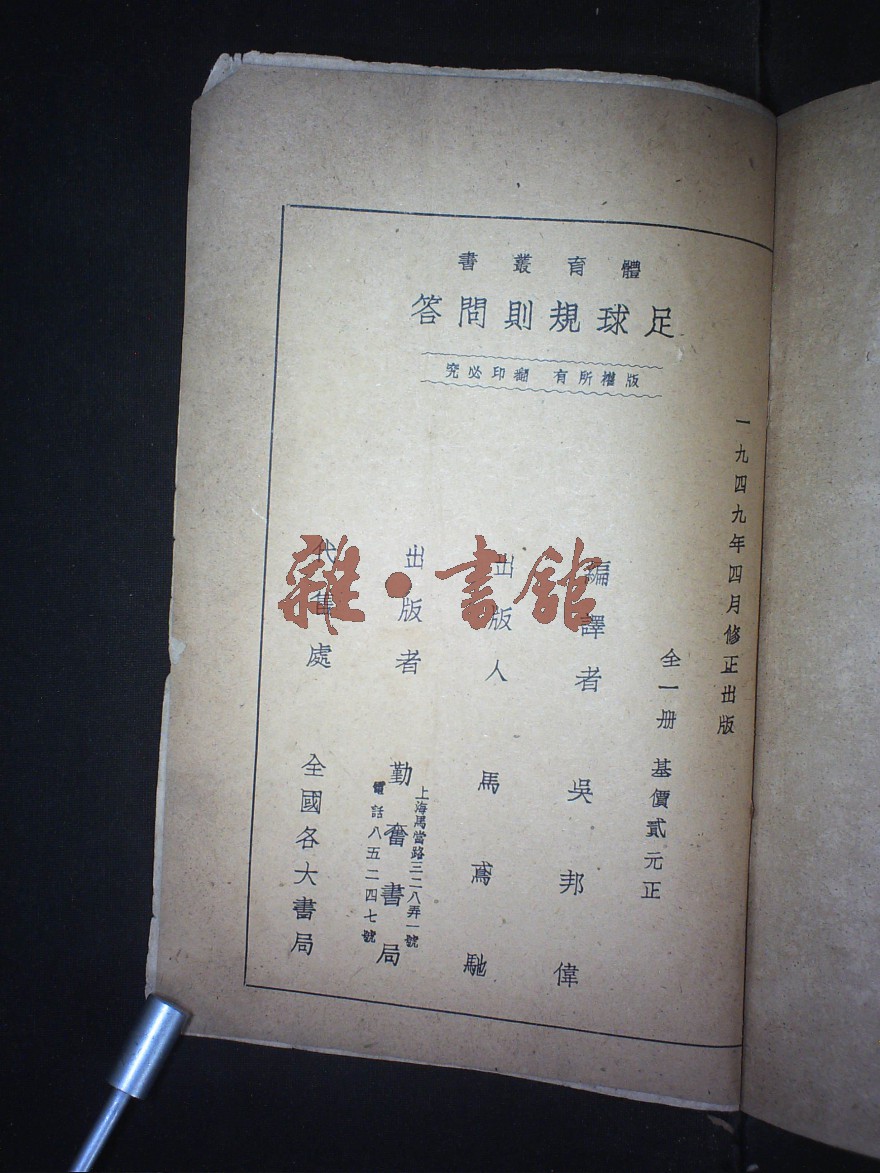 體育叢書
足球規則問答
版權所有 翻印必究
一九四九年四月修正出版
全一册 基價貳元正
編譯者 吳邦偉
出版人 馬鳶馳
出版者 勤奮書局
上海馬當路三二八弄一號
電話八五二四七號
代售處 全國各大書局
雜·書館